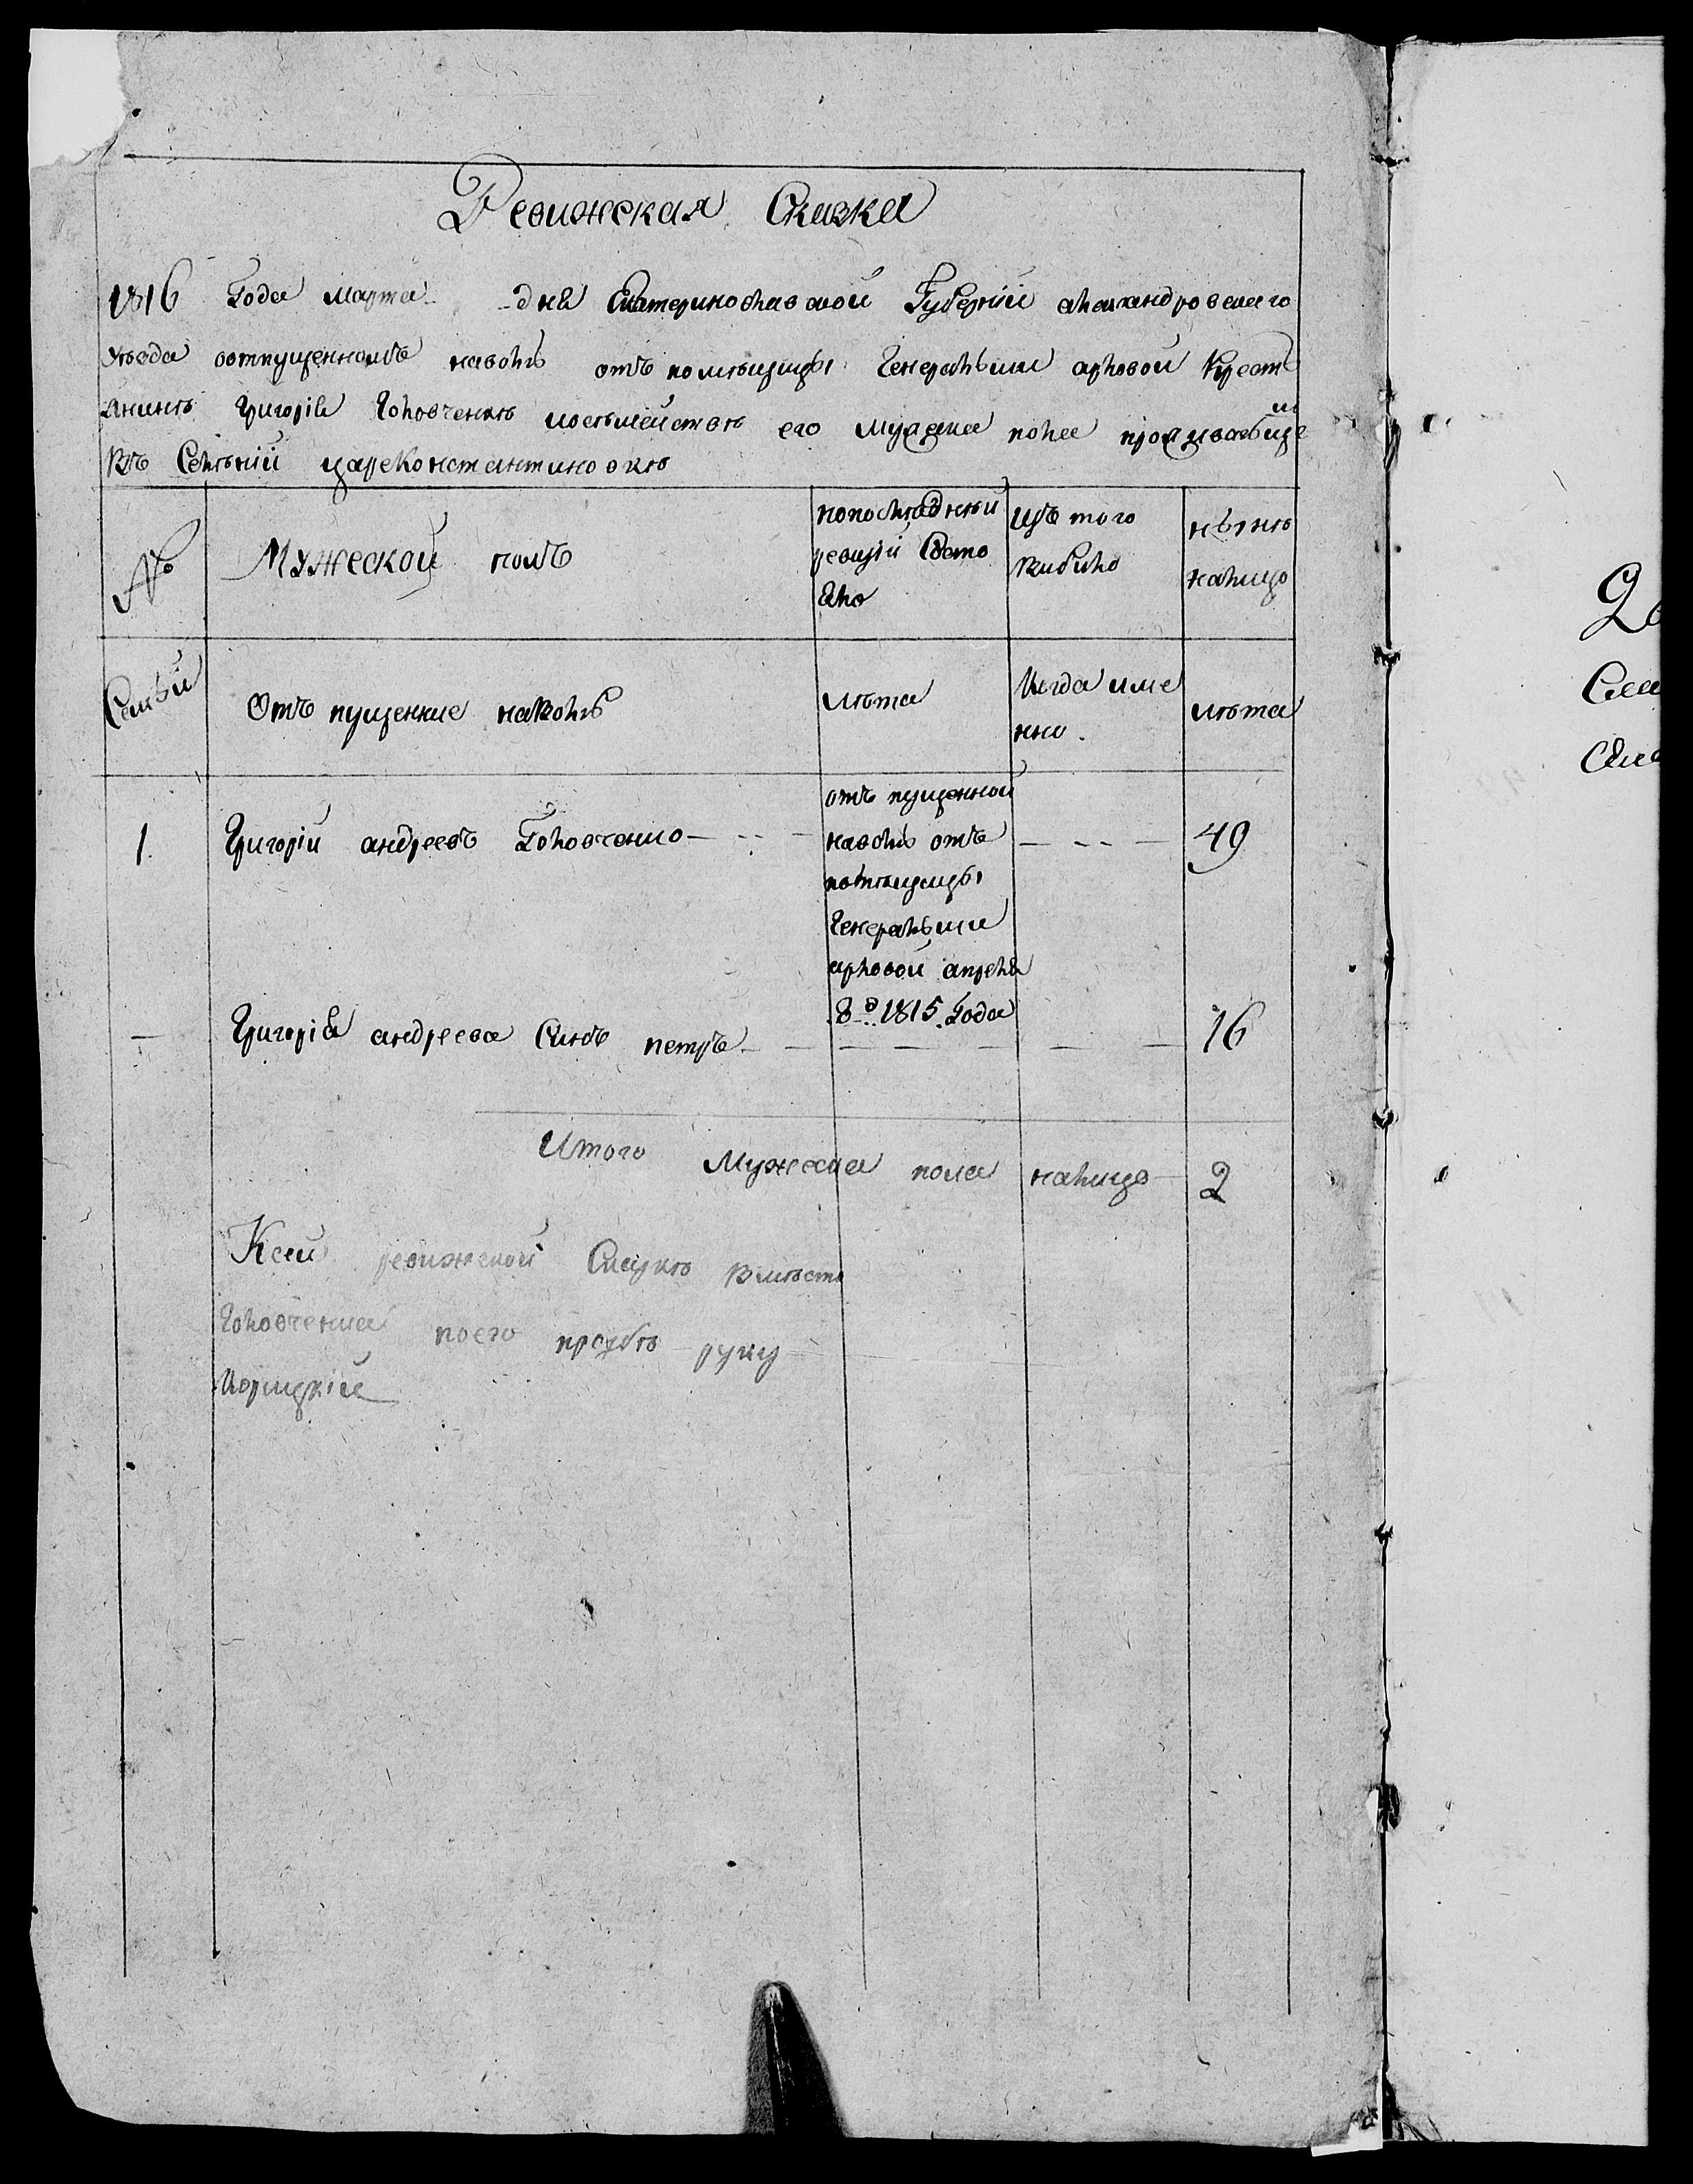 Ревижская Сказка
1816 Года марта дня Екатеринославской Губернїи александровскаго
уѣзда оотпущенномъ наволю отъ помѣщицы Генеральши арловой крестъ
янинѣ Григорїе Головченкѣ исъсѣмействѣ его мужска пола прожывающем
Въ Селѣнїи цареконстантиновкѣ
№
Мужеской полъ
попослѣднѣй
ревизїи Состо
яло
Изъ того
Выбыло
нынѣ
налицо
Семьи
Отъ пущенные наволю
лѣта
Когда име
нно.
лѣта
1. Григорїй андреевъ Головченко 49
отъ пущенной
наволю отъ
помѣщицы
Генеральши
арловой апреля
8го 1815. Года
Григорїя андреева Сынъ петръ 16
Итого Мужеска пола налицо 2
Ксей ревижской Скаскѣ вмѣсто
Головченка поего прозбѣ руку
Корицкїй